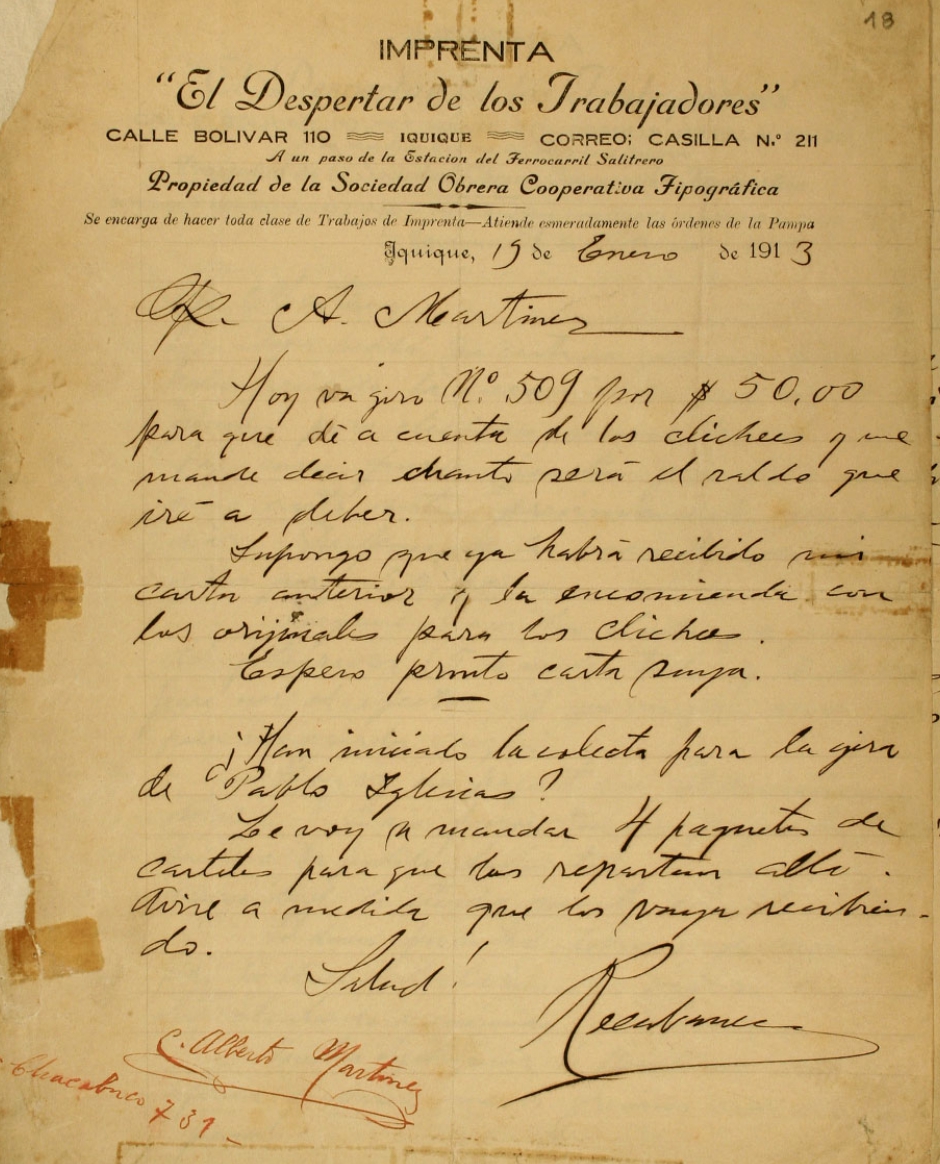 18
IMPRENTA
“El Despertar de los Trabajadores”
CALLE BOLIVAR 110 IQUIQUE CORREO; CASILLA N.º 211
A un paso de la Estacion del Ferrocarril Salitrero
Propiedad de la Sociedad Obrera Cooperativa Tipográfica
Se encarga de hacer toda clase de Trabajos de Imprenta—Atiende esmeradamente las órdenes de la Pampa
Iquique, 19 de Enero de 1913
A. Martinez
Hoy va giro Nº 509 por $ 50,00
para que dé a cuenta de los clichees y me
mande decir cuanto será el saldo que
iré a deber.
Supongo que ya habrá recibido mi
carta anterior y la encomienda con
los orijinales para los clichees.
Espero pronto carta suya.
¡Han iniciado la colecta para la jira
de Pablo Iglesias?
Le voy a mandar 4 paquetes de
carteles para que los repartan allá.
Avise a medida que los vaya recibien-
do.
Salud!
Recabarren
C. Alberto Martinez
Chacabuco 731